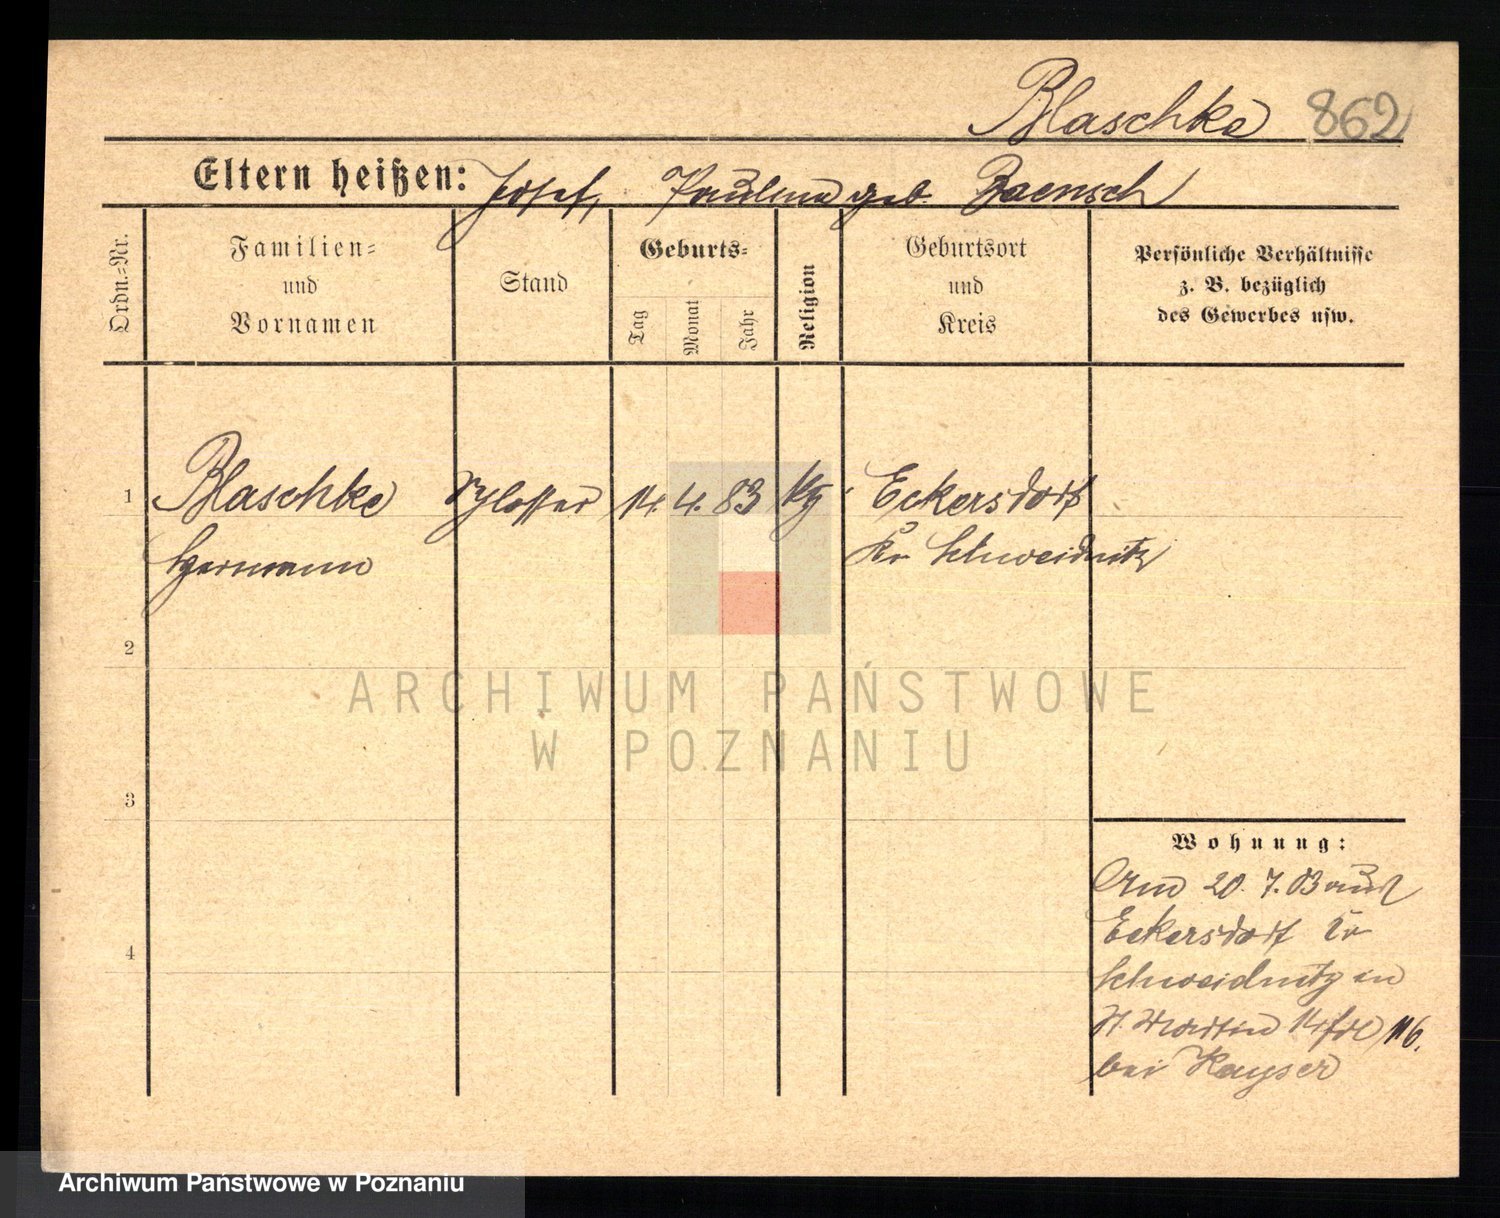 Blaschke 862
Eltern heißen: Josef, Paulina geb. Baensch
Ordn.=Nr.
Familien=
und
Vornamen
Stand
Geburts=
Tag
Monat
Jahr
Religion
Geburtsort
und
Kreis
Persönliche Verhältnisse
z. B. bezüglich
des Gewerbes usw.
1 Blaschke Schlosser 14. 4. 83 Eckersdorf
Hermann Kr Schweidnitz
2
3
4
Wohnung:
Am 20. 7. 03 aus
Eckersdorf Kr
Schweidnitz in
St. Martin 14 116.
bei Kayser
ARCHIWUM PAŃSTWOWE
W POZNANIU
Archiwum Państwowe w Poznaniu